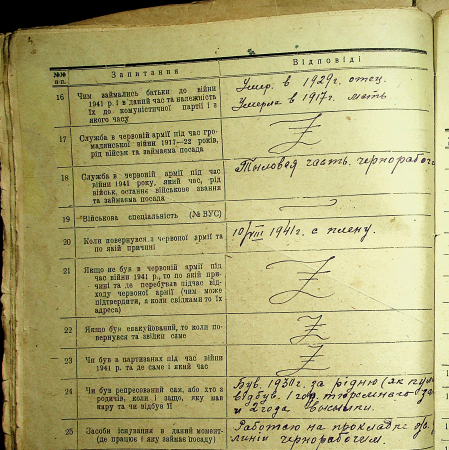 №№ п.п.
Запитання
Відповіді
16
Чим займались батьки до війни
1941 р. і в даний час та належність
їх до комуністичної партії і з
якого часу
Умер. в 1929г. отец.
Умерла в 1917г. мать
17
Служба в червоній армії під час гро-
мадянської війни 1917—22 років,
рід військ та займаєма посада
Z
18
Служба в червоній армії під час
війни 1941 року, який час, рід
військ, останнє військове звання
та займаєма посада
Тыловая часть. чернорабоч
19
Військова спеціальність (№ ВУС)
20
Коли повернувся з червоної армії та
по якій причині
10/VIII 1941г. с плену.
21
Якщо не був в червоній армії під
час війни 1941 р., то по якій при-
чині та де перебував підчас від-
ходу червоної армії (чим може
підтвердити, а коли свідками то їх
адреса)
Z
22
Якщо був евакуйований, то коли по-
вернувся та звідки саме
Z
23
Чи був в партизанах під час війни
1941 р. та де саме і який час
Z
24
Чи був репресований сам, або хто з
родичів, коли і защо, яку мав
кару та чи відбув її
Був. 1930г. за рідню (як
відбув. 1 год. тюремного
и 2 года высылки.
25
Засоби існування в даний момент-
(де працює і яку займає посаду)
Работаю на прокладке
линии чернорабочим.